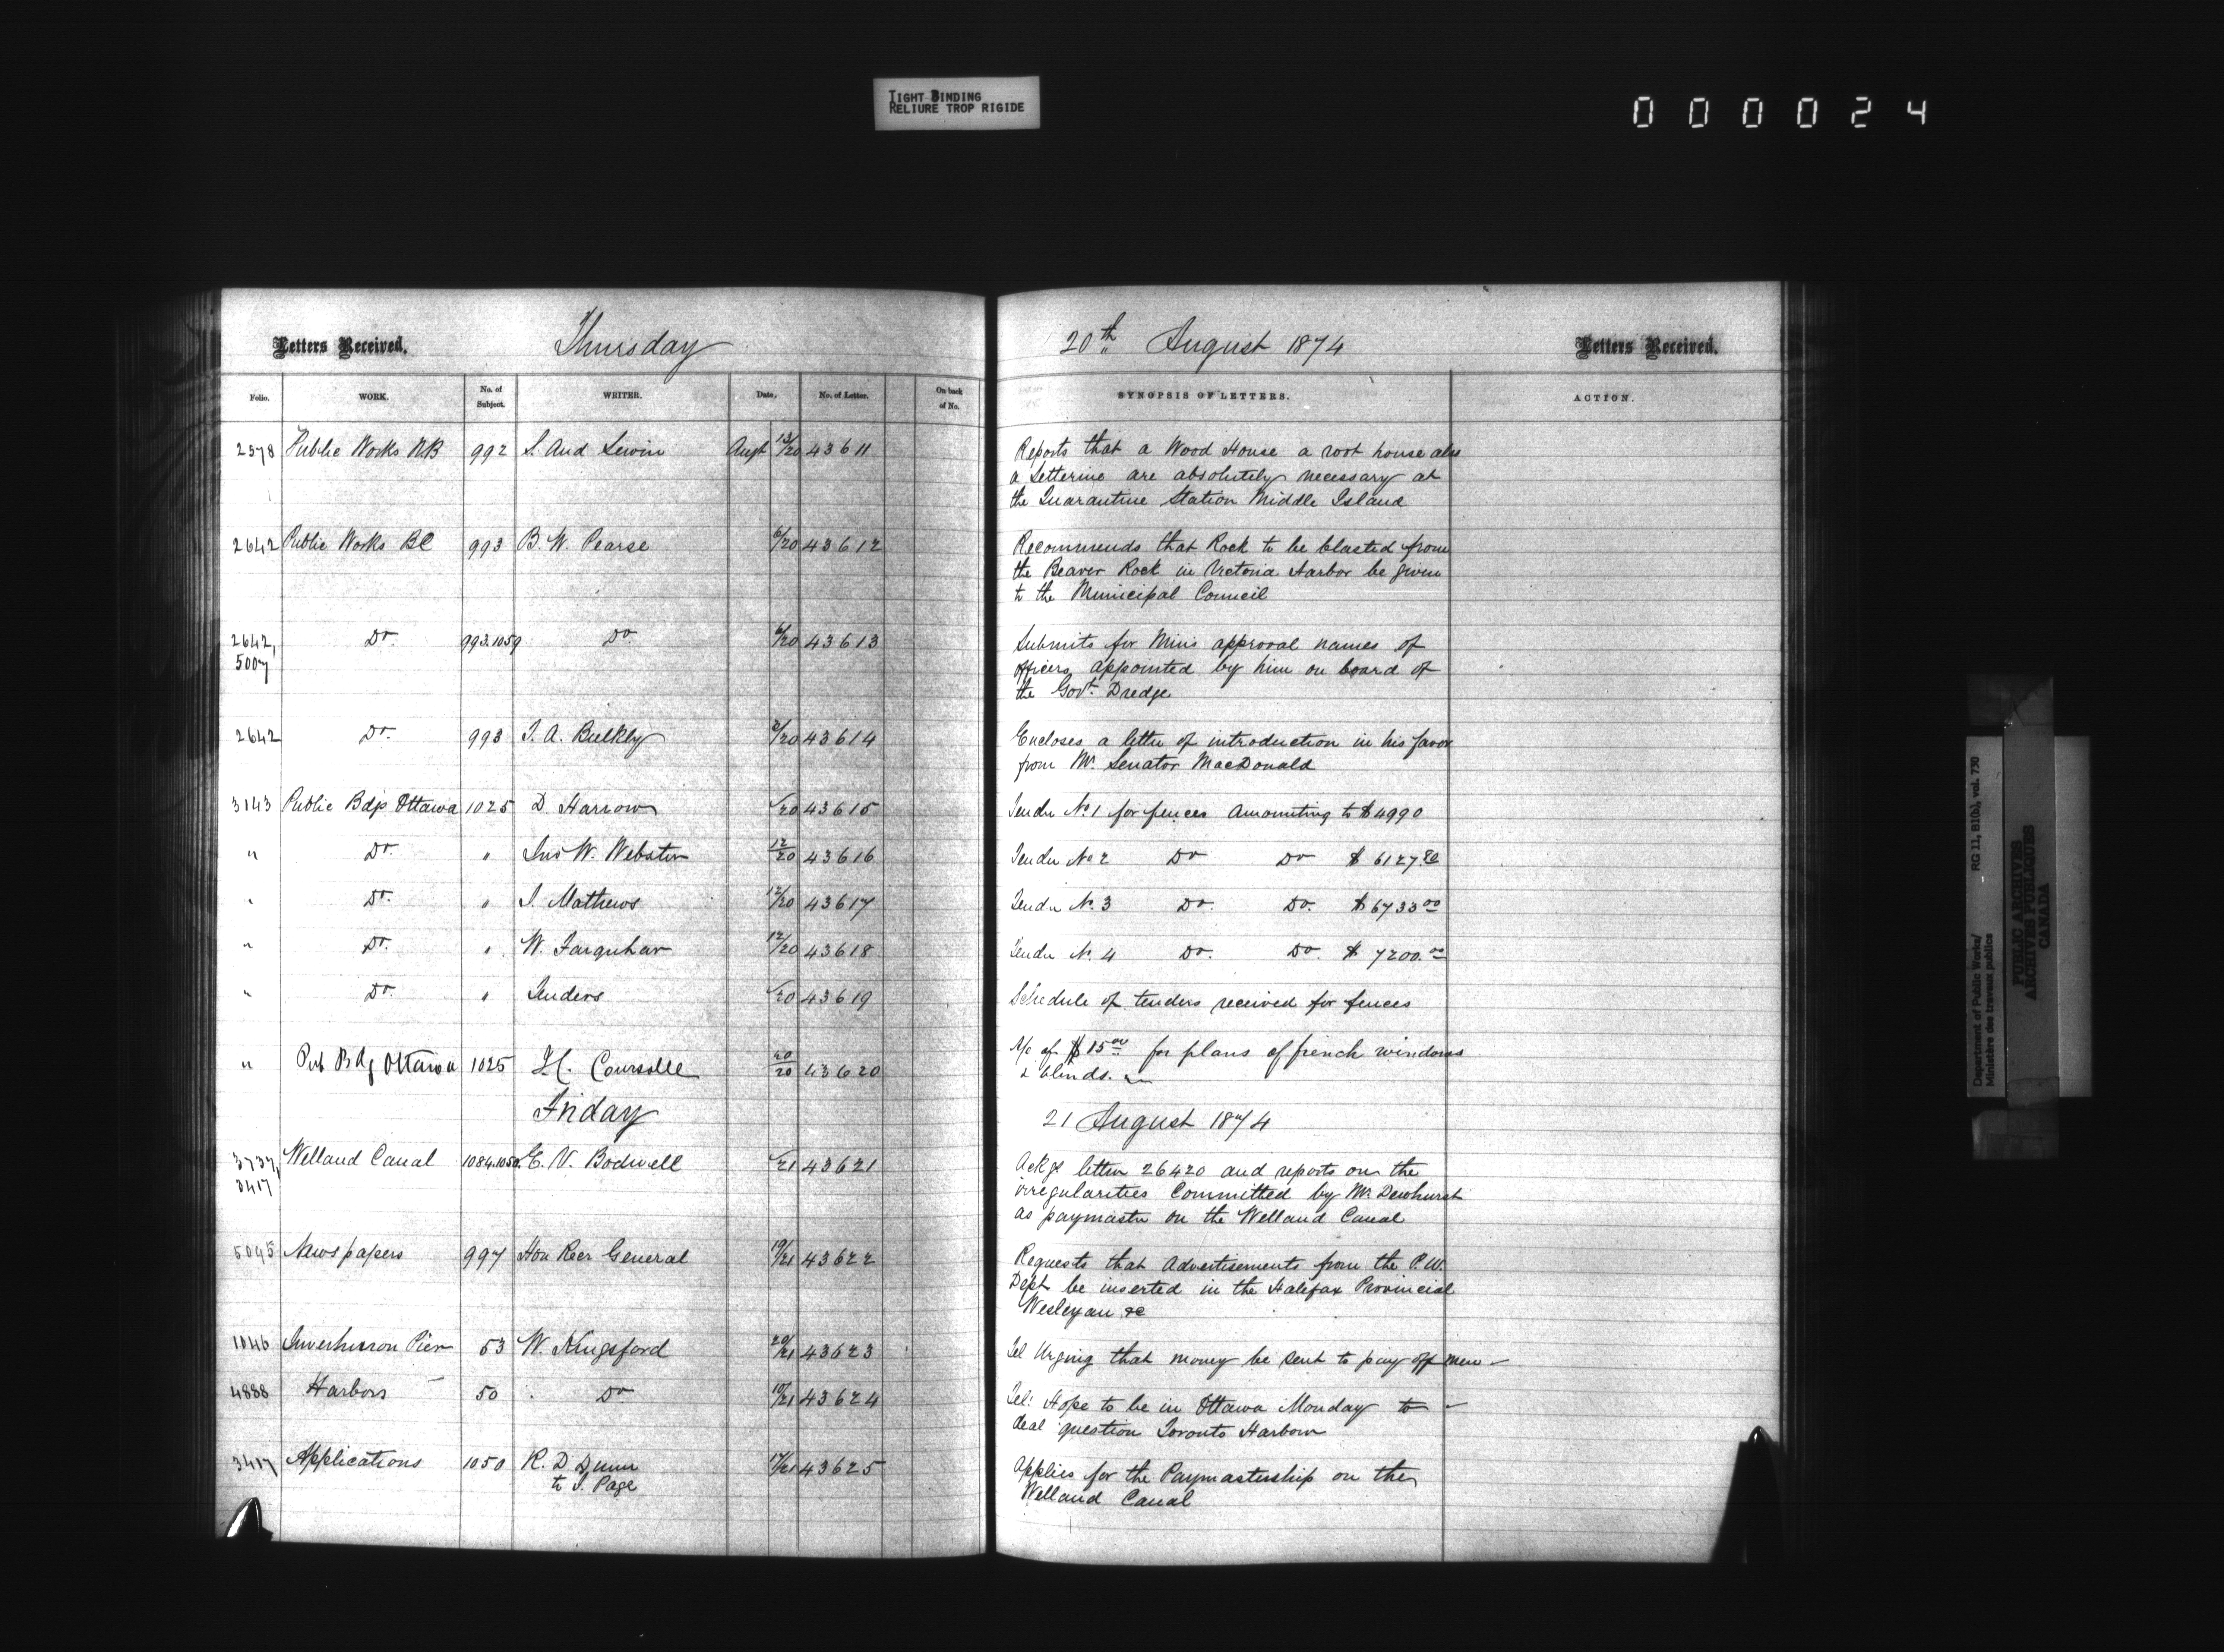 TIGHT BINDING
RELIURE TROP RIGIDE
000024
Letters Received. Thursday
Folio. WORK. No. of Subject. WRITER. Date. No. of Letter. On back of No.
2578 Public Works NB 992 S. Aud Lewin Augt 13/20 43611
2642 Public Works BC 993 B. W. Pearse 6/20 43612
2642, 993.1059 Do Do 6/20 43613
5007
2642 Do 993 T. A. Bulkley 3/20 43614
3143 Public Bdgs Ottawa 1025 D. Harrow /20 43615
" Do " Jno W. Webster 12/20 43616
" Do " J. Mathews 12/20 43617
" Do " W. Farquhar 12/20 43618
" Do " Tenders /20 43619
" Pub Bdg Ottawa 1025 H. Coursolle 20/20 43620
Friday
3737, Welland Canal 1084.1050 E. V. Bodwell /21 43621
3417
5095 Newspapers 997 Hon Recr General 19/21 43622
1046 Inverhuron Pier 53 W. Kingsford 20/21 43623
4888 Harbors 50 Do 10/21 43624
3417 Applications 1050 R. D Dunn 17/21 43625
to J. Page
20th August 1874 Letters Received.
SYNOPSIS OF LETTERS. ACTION.
Reports that a Wood House a root house also
a Letterine are absolutely necessary at
the Quarantine Station Middle Island
Recommends that Rock to be blasted from
the Beaver Rock in Victoria Harbor be given
to the Municipal Council
Submits for Mins approval names of
officers appointed by him on board of
the Govt. Dredge
Encloses a letter of introduction in his favor
from Mr. Senator MacDonald
Tender No. 1 for fences Amounting to $4990
Tender No 2 Do Do $ 6127.80
Tender No. 3 Do. Do. $ 6733 00
Tender No. 4 Do. Do. $ 7200.00
Schedule of tenders received for fences
A/c of $15 00 for plans of french windows
& blinds.
21 August 1874
Ackgs letter 26420 and reports on the
irregularities Committed by Mr. Dewhurst
as paymaster on the Welland Canal
Requests that Advertisements from the P.W.
Dept be inserted in the Halifax Provincial
Wesleyan &c
Tel Urging that money be sent to pay off men
Tel: Hope to be in Ottawa Monday to
deal question Toronto Harbour
Applies for the Paymastership on the
Welland Canal
Department of Public Works/ RG 11, B1(b), vol. 730
Ministère des travaux publics
PUBLIC ARCHIVES
ARCHIVES PUBLIQUES
CANADA